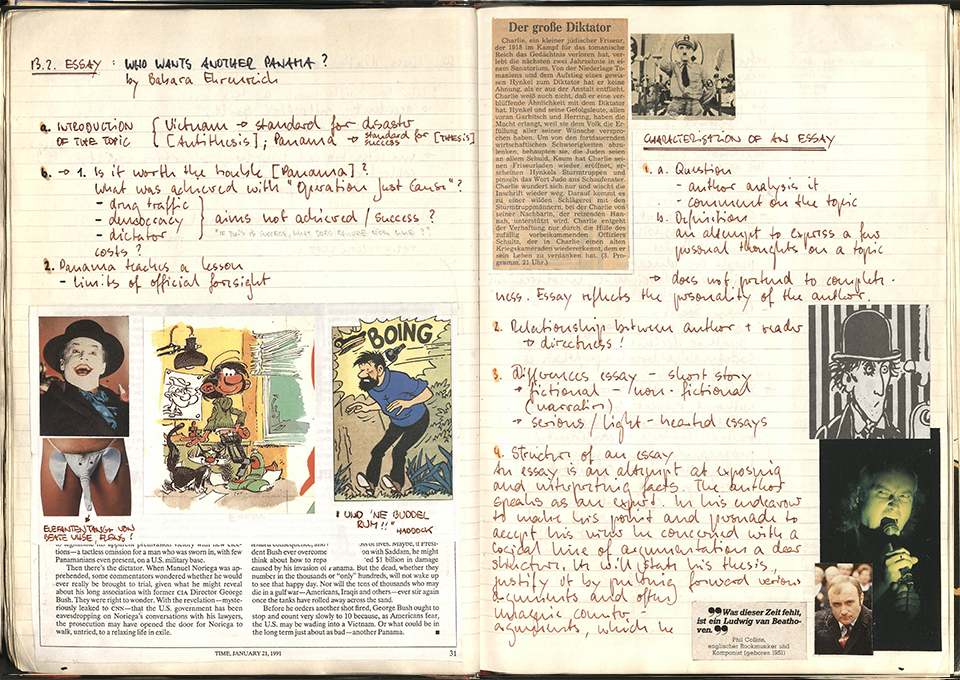 13.2. ESSAY : WHO WANTS ANOTHER PANAMA ?
by Babara Ehrenreich
a. INTRODUCTION OF THE TOPIC
Vietnam → standard for disaster
[Antithesis] ; Panama → standard for success [THESIS]
b. → 1. Is it worth the trouble [Panama] ?
What was achieved with "Operation Just Cause" ?
- drug traffic
- democracy
- dictator
aims not achieved / success ?
"IF THIS IS SUCCESS, WHAT DOES FAILURE LOOK LIKE ?"
costs ?
2. Panama teaches a lesson
- limits of official foresight
BOING
ELEFANTENTANGA VON
BEATE UHSE, FLENS !
"UND 'NE BUDDEL
RUM !!"
HADDOCK
tions—a tactless omission for a man who was sworn in, with few
Panamanians even present, on a U.S. military base.
Then there's the dictator. When Manuel Noriega was ap-
prehended, some commentators wondered whether he would
ever really be brought to trial, given what he might reveal
about his long association with former CIA Director George
Bush. They were right to wonder. With the revelation—myste-
riously leaked to CNN—that the U.S. government has been
eavesdropping on Noriega's conversations with his lawyers,
the prosecution may have opened the door for Noriega to
walk, untried, to a relaxing life in exile.
dent Bush ever overcome
think about how to repa
caused by his invasion of Panama. But the dead, whether they
number in the thousands or "only" hundreds, will not wake up
to see that happy day. Nor will the tens of thousands who may
die in a gulf war—Americans, Iraqis and others—ever stir again
once the tanks have rolled away across the sand.
Before he orders another shot fired, George Bush ought to
stop and count very slowly to 10 because, as Americans fear,
the U.S. may be wading into a Vietnam. Or what could be in
the long term just about as bad—another Panama.
with Saddam, he might
ed $1 billion in damage
TIME, JANUARY 21, 1991
31
Der große Diktator
Charlie, ein kleiner jüdischer Friseur,
der 1918 im Kampf für das tomanische
Reich das Gedächtnis verloren hat, ver-
lebt die nächsten zwei Jahrzehnte in ei-
nem Sanatorium. Von der Niederlage To-
maniens und dem Aufstieg eines gewis-
sen Hynkel zum Diktator hat er keine
Ahnung, als er aus der Anstalt entflieht.
Charlie weiß auch nicht, daß er eine ver-
blüffende Ähnlichkeit mit dem Diktator
hat. Hynkel und seine Gefolgsleute, allen
voran Garbitsch und Herring, haben die
Macht erlangt, weil sie dem Volk die Er-
füllung aller seiner Wünsche verspro-
chen haben. Um von den fortdauernden
wirtschaftlichen Schwierigkeiten abzu-
lenken, behaupten sie, die Juden seien
an allem Schuld. Kaum hat Charlie sei-
nen Friseurladen wieder eröffnet, er-
scheinen Hynkels Sturmtruppen und
pinseln das Wort Jude ans Schaufenster.
Charlie wundert sich nur und wischt die
Inschrift wieder weg. Darauf kommt es
zu einer wilden Schlägerei mit den
Sturmtruppmännern, bei der Charlie von
seiner Nachbarin, der reizenden Han-
nah, unterstützt wird. Charlie entgeht
der Verhaftung nur durch die Hilfe des
zufällig vorbeikommenden Offiziers
Schultz, der in Charlie einen alten
Kriegskameraden wiedererkennt, dem er
sein Leben zu verdanken hat. (3. Pro-
gramm, 21 Uhr.)
CHARACTERISTION OF AN ESSAY
1. a. Question
- author analysis it
- comment on the topic
b. Definition
an attempt to express a few
personal thoughts on a topic
→ does not pretend to complete-
ness. Essay reflects the personality of the author.
2. Relationship between author + reader
→ directness !
3. Differences essay - short story
→ fictional - non-fictional
(narrator)
→ serious / light-hearted essays
4. Structure of an essay
An essay is an attempt at exposing
and interpreting facts. The author
speaks as an expert. In his endeavour
to make his point and persuade to
accept his view he concerned with a
logical line of argumentation a clear
structure. He will state his thesis,
justify it by putting forward various
arguments and often
imagine counter-
arguments, which he
Was dieser Zeit fehlt,
ist ein Ludwig van Beatho-
ven.
Phil Collins,
englischer Rockmusiker und
Komponist (geboren 1951)